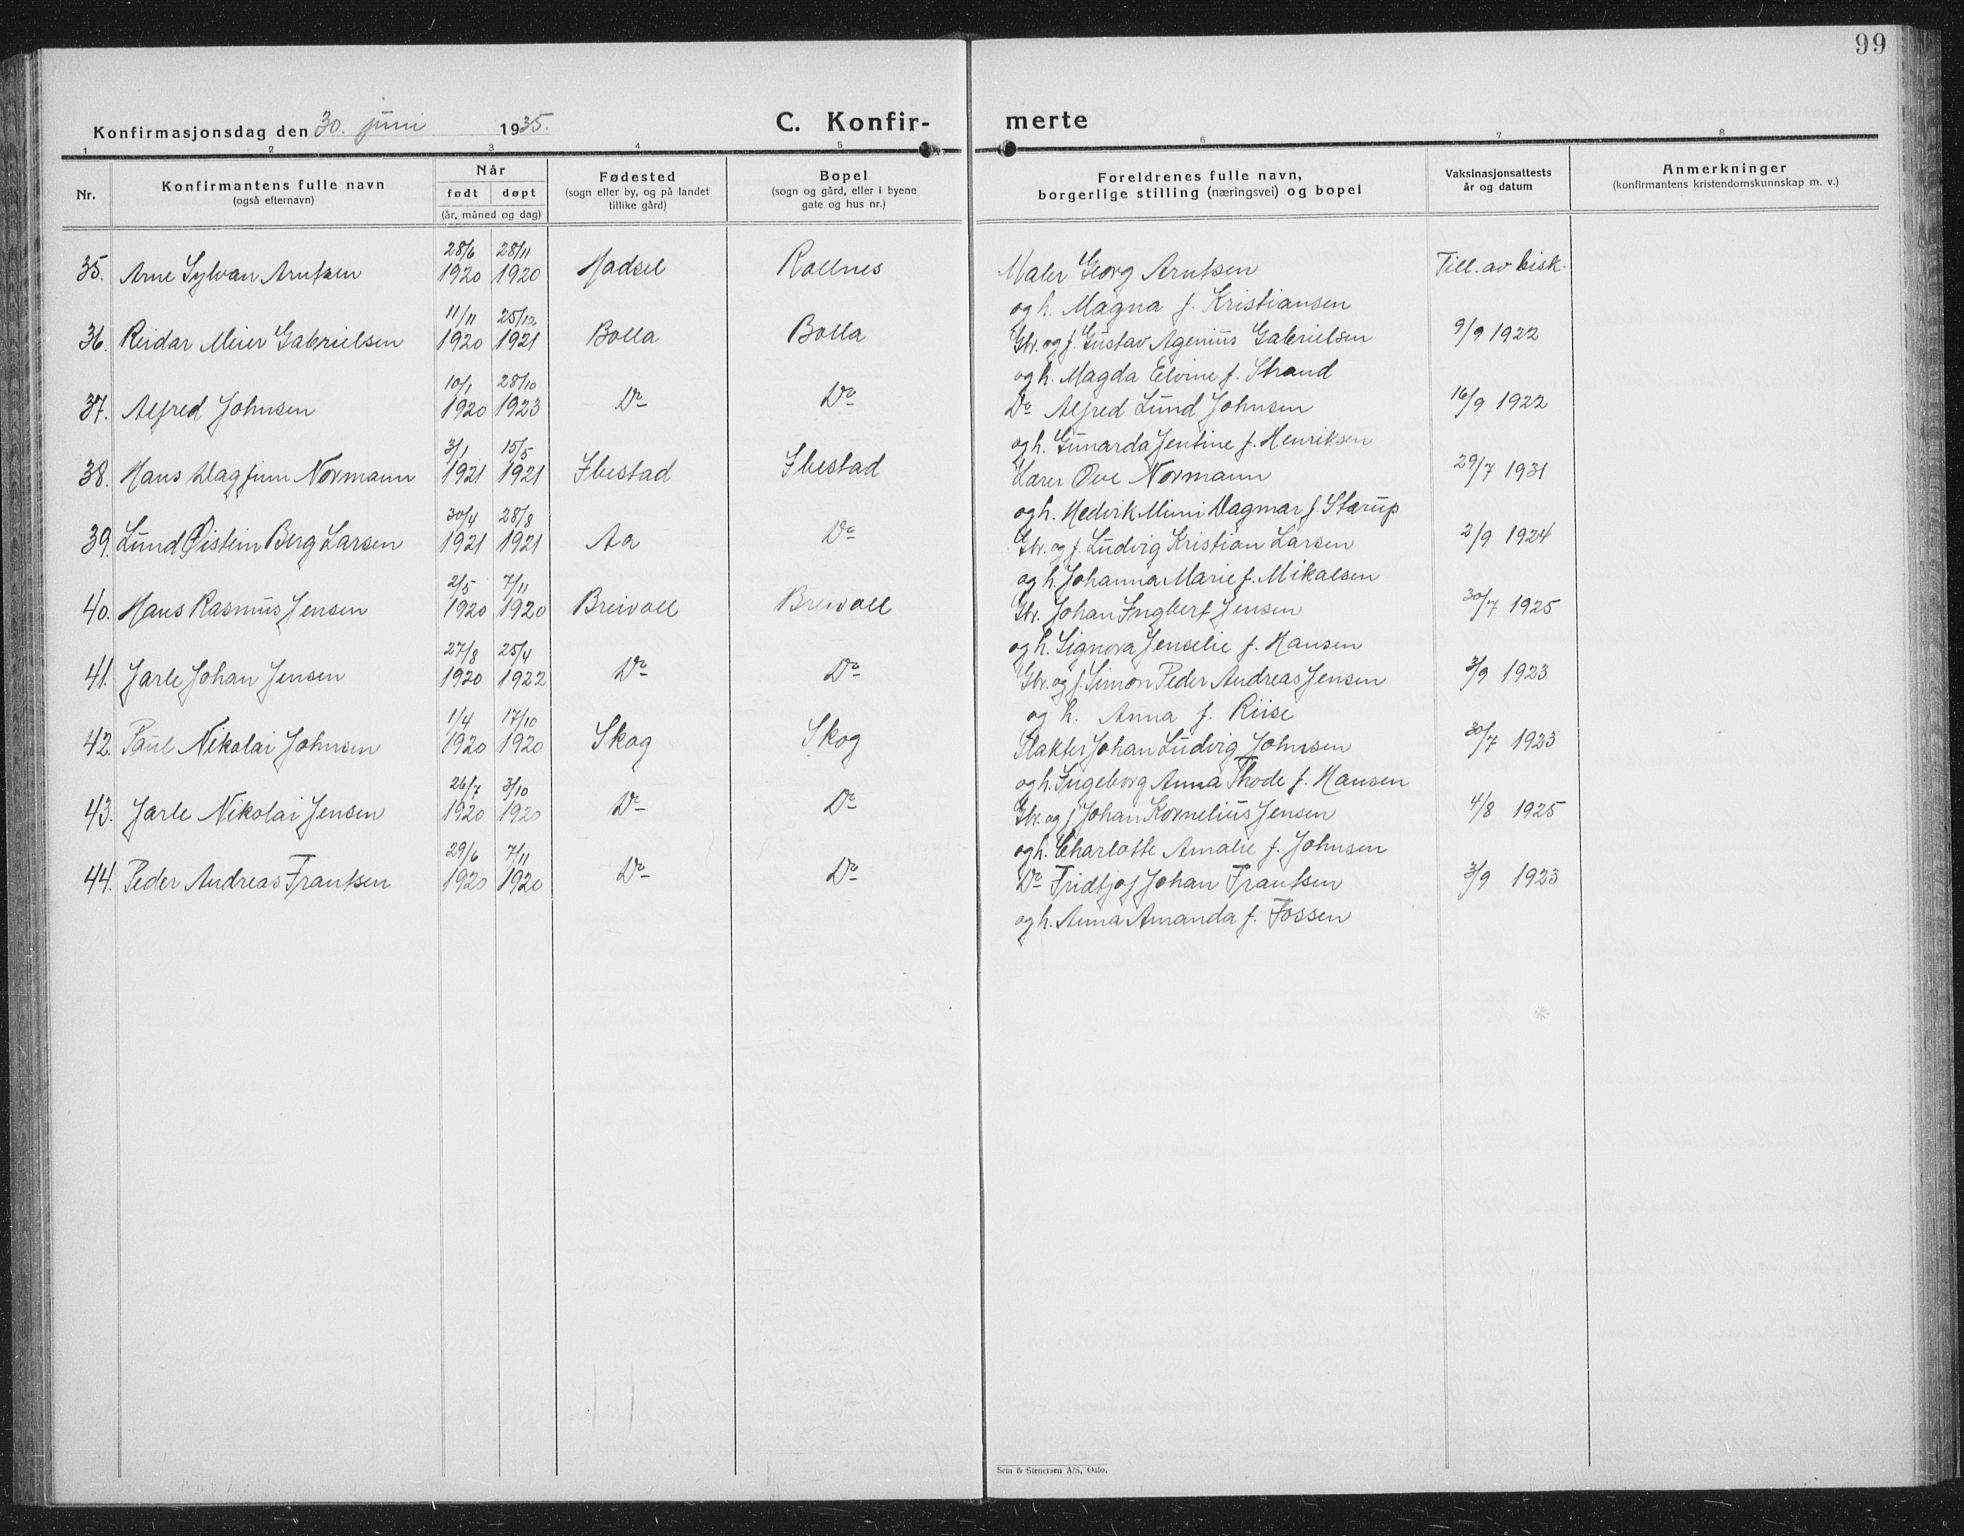 99
Konfirmasjonsdag den 30. juni 1935.
C. Konfir-
merte
1 2 3 4 5 6 7 8
Nr.
Konfirmantens fulle navn
(også efternavn)
Når
født døpt
(år, måned og dag)
Fødested
(sogn eller by, og på landet
tillike gård)
Bopel
(sogn og gård, eller i byene
gate og hus nr.)
Foreldrenes fulle navn,
borgerlige stilling (næringsvei) og bopel
Vaksinasjonsattests
år og datum
Anmerkninger
(konfirmantens kristendomskunnskap m. v.)
28/6 28/11
35. Arne Sylvan Arntsen 1920 1920 Hadsel Rollnes Maler Georg Arntsen Till. av bisk.
og h. Magna f. Kristiansen
11/11 25/12
36. Reidar Meier Gabrielsen 1920 1921 Bolla Bolla Gbr. og f. Gustav Agenius Gabrielsen 9/9 1922
og h. Magda Elvine f. Strand
10/1 28/10
37. Alfred Johnsen 1920 1923 Do Do Do Alfred Lund Johnsen 16/9 1922
og h. Gunarda Jentine f. Henriksen
3/1 15/5
38. Hans Dagfinn Normann 1921 1921 Ibestad Ibestad Lærer Ove Normann 29/7 1931
og h. Hedvik Mimi Dagmar f. Starup
30/4 28/8
39. Lund Øistein Berg Larsen 1921 1921 Aa Do Gbr. og f. Ludvig Kristian Larsen 2/9 1924
og h. Johanna Marie f. Mikalsen
2/5 7/11
40. Hans Rasmus Jensen 1920 1920 Breivoll Breivoll Gbr. Johan Ingbert Jensen 30/7 1925
og h. Signora Jenselie f. Hansen
27/8 25/4
41. Jarle Johan Jensen 1920 1922 Do Do Gbr. og f. Simon Peder Andreas Jensen 3/9 1923
og h. Anna f. Riise
1/4 17/10
42. Paul Nikolai Johnsen 1920 1920 Skog Skog Slakter Johan Ludvig Johnsen 30/7 1923
og h. Ingeborg Anna Thode f. Hansen
26/7 3/10
43. Jarle Nikolai Jensen 1920 1920 Do Do Gbr. og f. Johan Kornelius Jensen 4/8 1925
og h. Charlotte Amalie f. Johnsen
29/6 7/11
44. Peder Andreas Frantsen 1920 1920 Do Do Do Fridtjof Johan Frantsen 3/9 1923
og h. Anna Amanda f. Fossen
Sem & Stenersen A/S, Oslo.